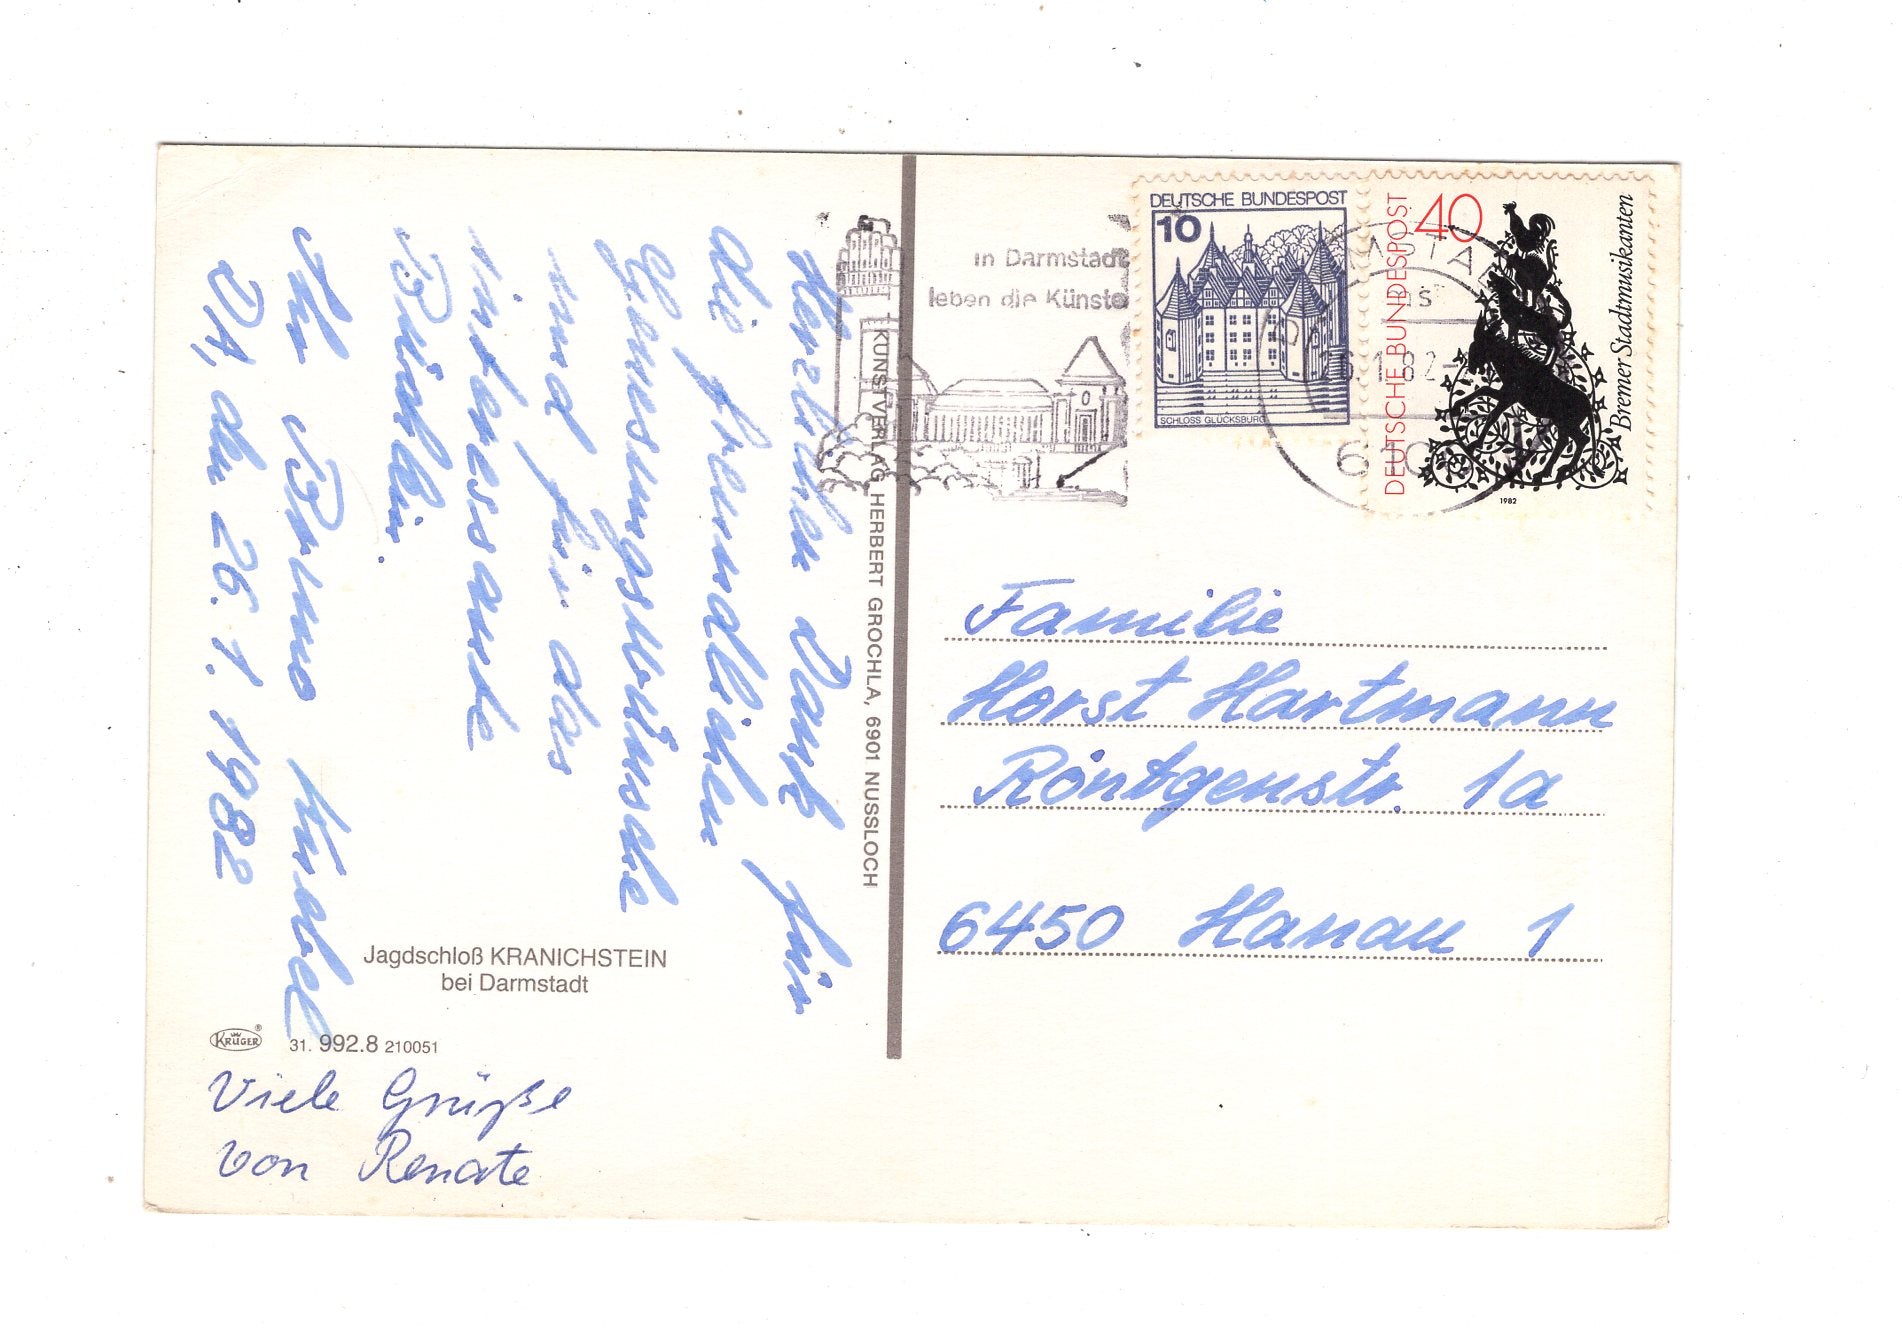 Herzlichen Dank für
die freundlichen
Genesungswünsche
und für das
interessante
Büchlein.
Ihr Bruno
DA, den 26.1.1982
Jagdschloß KRANICHSTEIN
bei Darmstadt
KRÜGER ®
31. 992.8 210051
Viele Grüße
von Renate
KUNSTVERLAG HERBERT GROCHLA, 6901 NUSSLOCH
in Darmstadt
leben die Künste
DEUTSCHE BUNDESPOST
10
SCHLOSS GLÜCKSBURG
DEUTSCHE BUNDESPOST
40
Bremer Stadtmusikanten
1982
Familie
Horst Hartmann
Röntgenstr. 1a
6450 Hanau 1